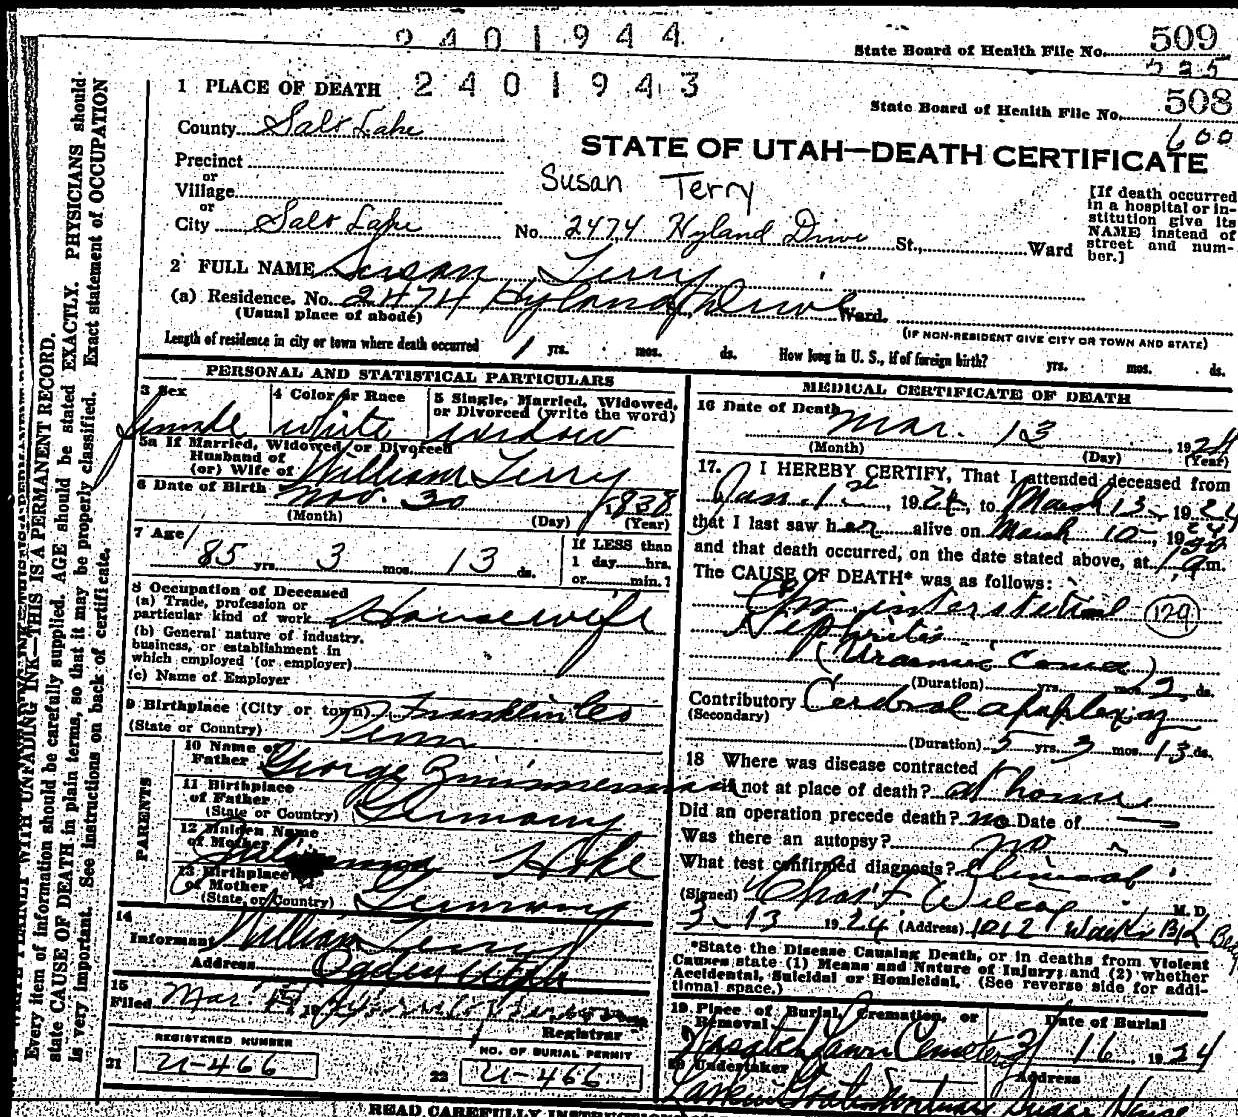 2401944
State Board of Health File No. 509
225
2401943
State Board of Health File No. 508
600
1 PLACE OF DEATH
County Salt Lake
STATE OF UTAH—DEATH CERTIFICATE
Precinct
or
Village
or
Susan Terry
City Salt Lake No. 2474 Hyland Drive St., Ward
[If death occurred
in a hospital or in-
stitution give its
NAME instead of
street and num-
ber.]
2 FULL NAME Susan Terry
(a) Residence. No. 2474 Hyland Drive Ward.
(Usual place of abode)
(IF NON-RESIDENT GIVE CITY OR TOWN AND STATE)
Length of residence in city or town where death occurred 1 yrs. mos. ds. How long in U. S., if of foreign birth? yrs. mos. ds.
PERSONAL AND STATISTICAL PARTICULARS
3 Sex 4 Color or Race 5 Single, Married, Widowed,
or Divorced (write the word)
female white widow
5a If Married, Widowed or Divorced
Husband of
(or) Wife of William Terry
6 Date of Birth Nov. 30 1838
(Month) (Day) (Year)
7 Age
85 yrs. 3 mos. 13 ds.
If LESS than
1 day hrs.
or min.?
8 Occupation of Deceased
(a) Trade, profession or
particular kind of work Housewife
(b) General nature of industry,
business, or establishment in
which employed (or employer)
(c) Name of Employer
9 Birthplace (City or town) Franklin Co
(State or Country) Penn
PARENTS
10 Name of
Father George Zimmerman
11 Birthplace
of Father
(State or Country) Germany
12 Maiden Name
of Mother Hoke
13 Birthplace
of Mother
(State or Country) Germany
14
Informant William Terry
Address Ogden Utah
15
Filed Mar. 19
Registrar
REGISTERED NUMBER
21 U-466
NO. OF BURIAL PERMIT
22 U-466
MEDICAL CERTIFICATE OF DEATH
16 Date of Death Mar. 13 1924
(Month) (Day) (Year)
17. I HEREBY CERTIFY, That I attended deceased from
Jan. 1st, 1924, to March 13, 1924
that I last saw her alive on March 10, 1924
and that death occurred, on the date stated above, at m.
The CAUSE OF DEATH* was as follows:
interstitial 129
Nephritis
(Uraemic Coma)
(Duration) yrs. mos. 2 ds.
Contributory Cerebral apoplexy
(Secondary)
(Duration) 5 yrs. 3 mos. 13 ds.
18 Where was disease contracted
if not at place of death? at home
Did an operation precede death? no Date of
Was there an autopsy? no
What test confirmed diagnosis? Clinical
(Signed) Chas F Wilcox M. D.
3-13 1924 (Address) 1012
*State the Disease Causing Death, or in deaths from Violent
Causes state (1) Means and Nature of Injury; and (2) whether
Accidental, Suicidal or Homicidal. (See reverse side for addi-
tional space.)
19 Place of Burial, Cremation, or
Removal
Date of Burial
Wasatch Lawn Cemetery 3/16 1924
20 Undertaker Address
READ CAREFULLY
UNFADING INK—THIS IS A PERMANENT RECORD.
Every item of information should be carefully supplied. AGE should be stated EXACTLY. PHYSICIANS should
state CAUSE OF DEATH in plain terms, so that it may be properly classified. Exact statement of OCCUPATION
is very important. See instructions on back of certificate.